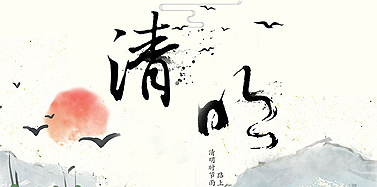 清明
清明时节雨
路上